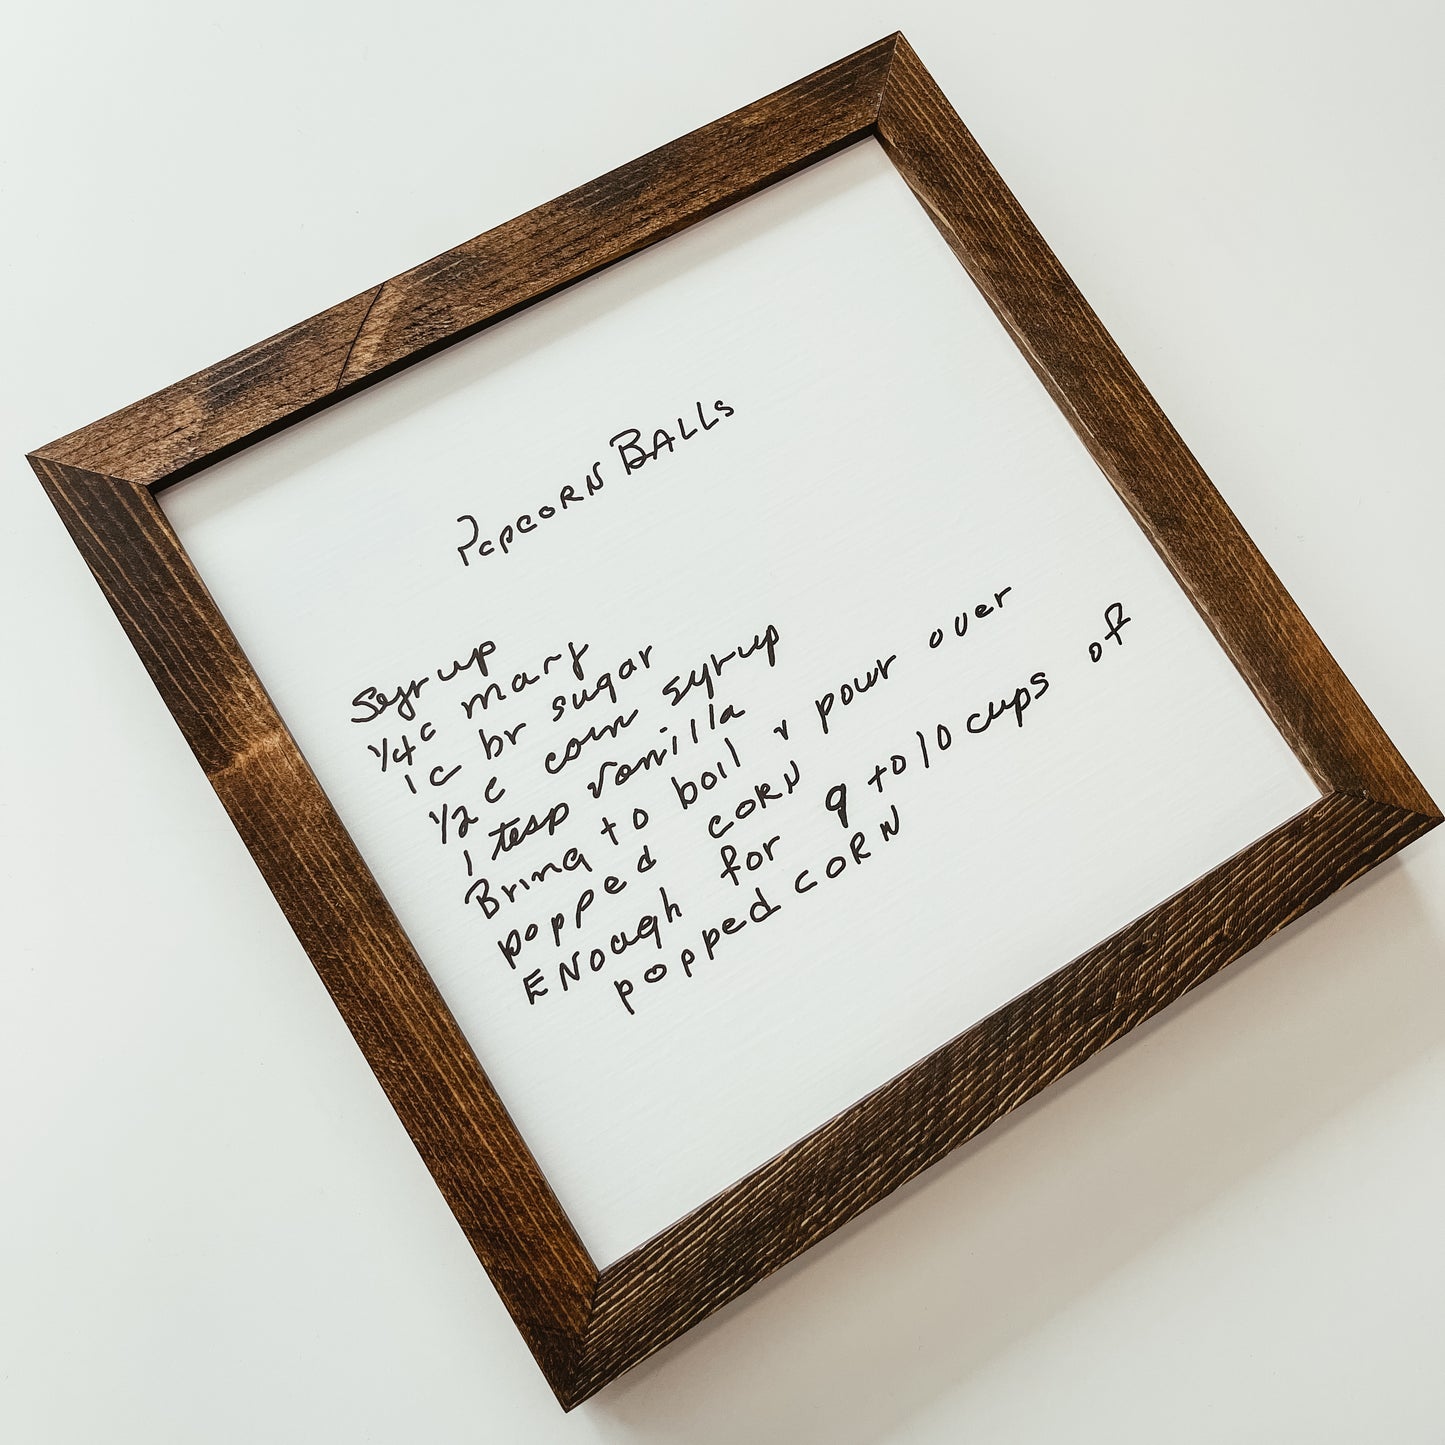 Popcorn Balls
Syrup
1/4 c marg
1 c br sugar
1/2 c corn syrup
1 tesp vanilla
Bring to boil & pour over
popped corn
Enough for 9 to 10 cups of
popped corn